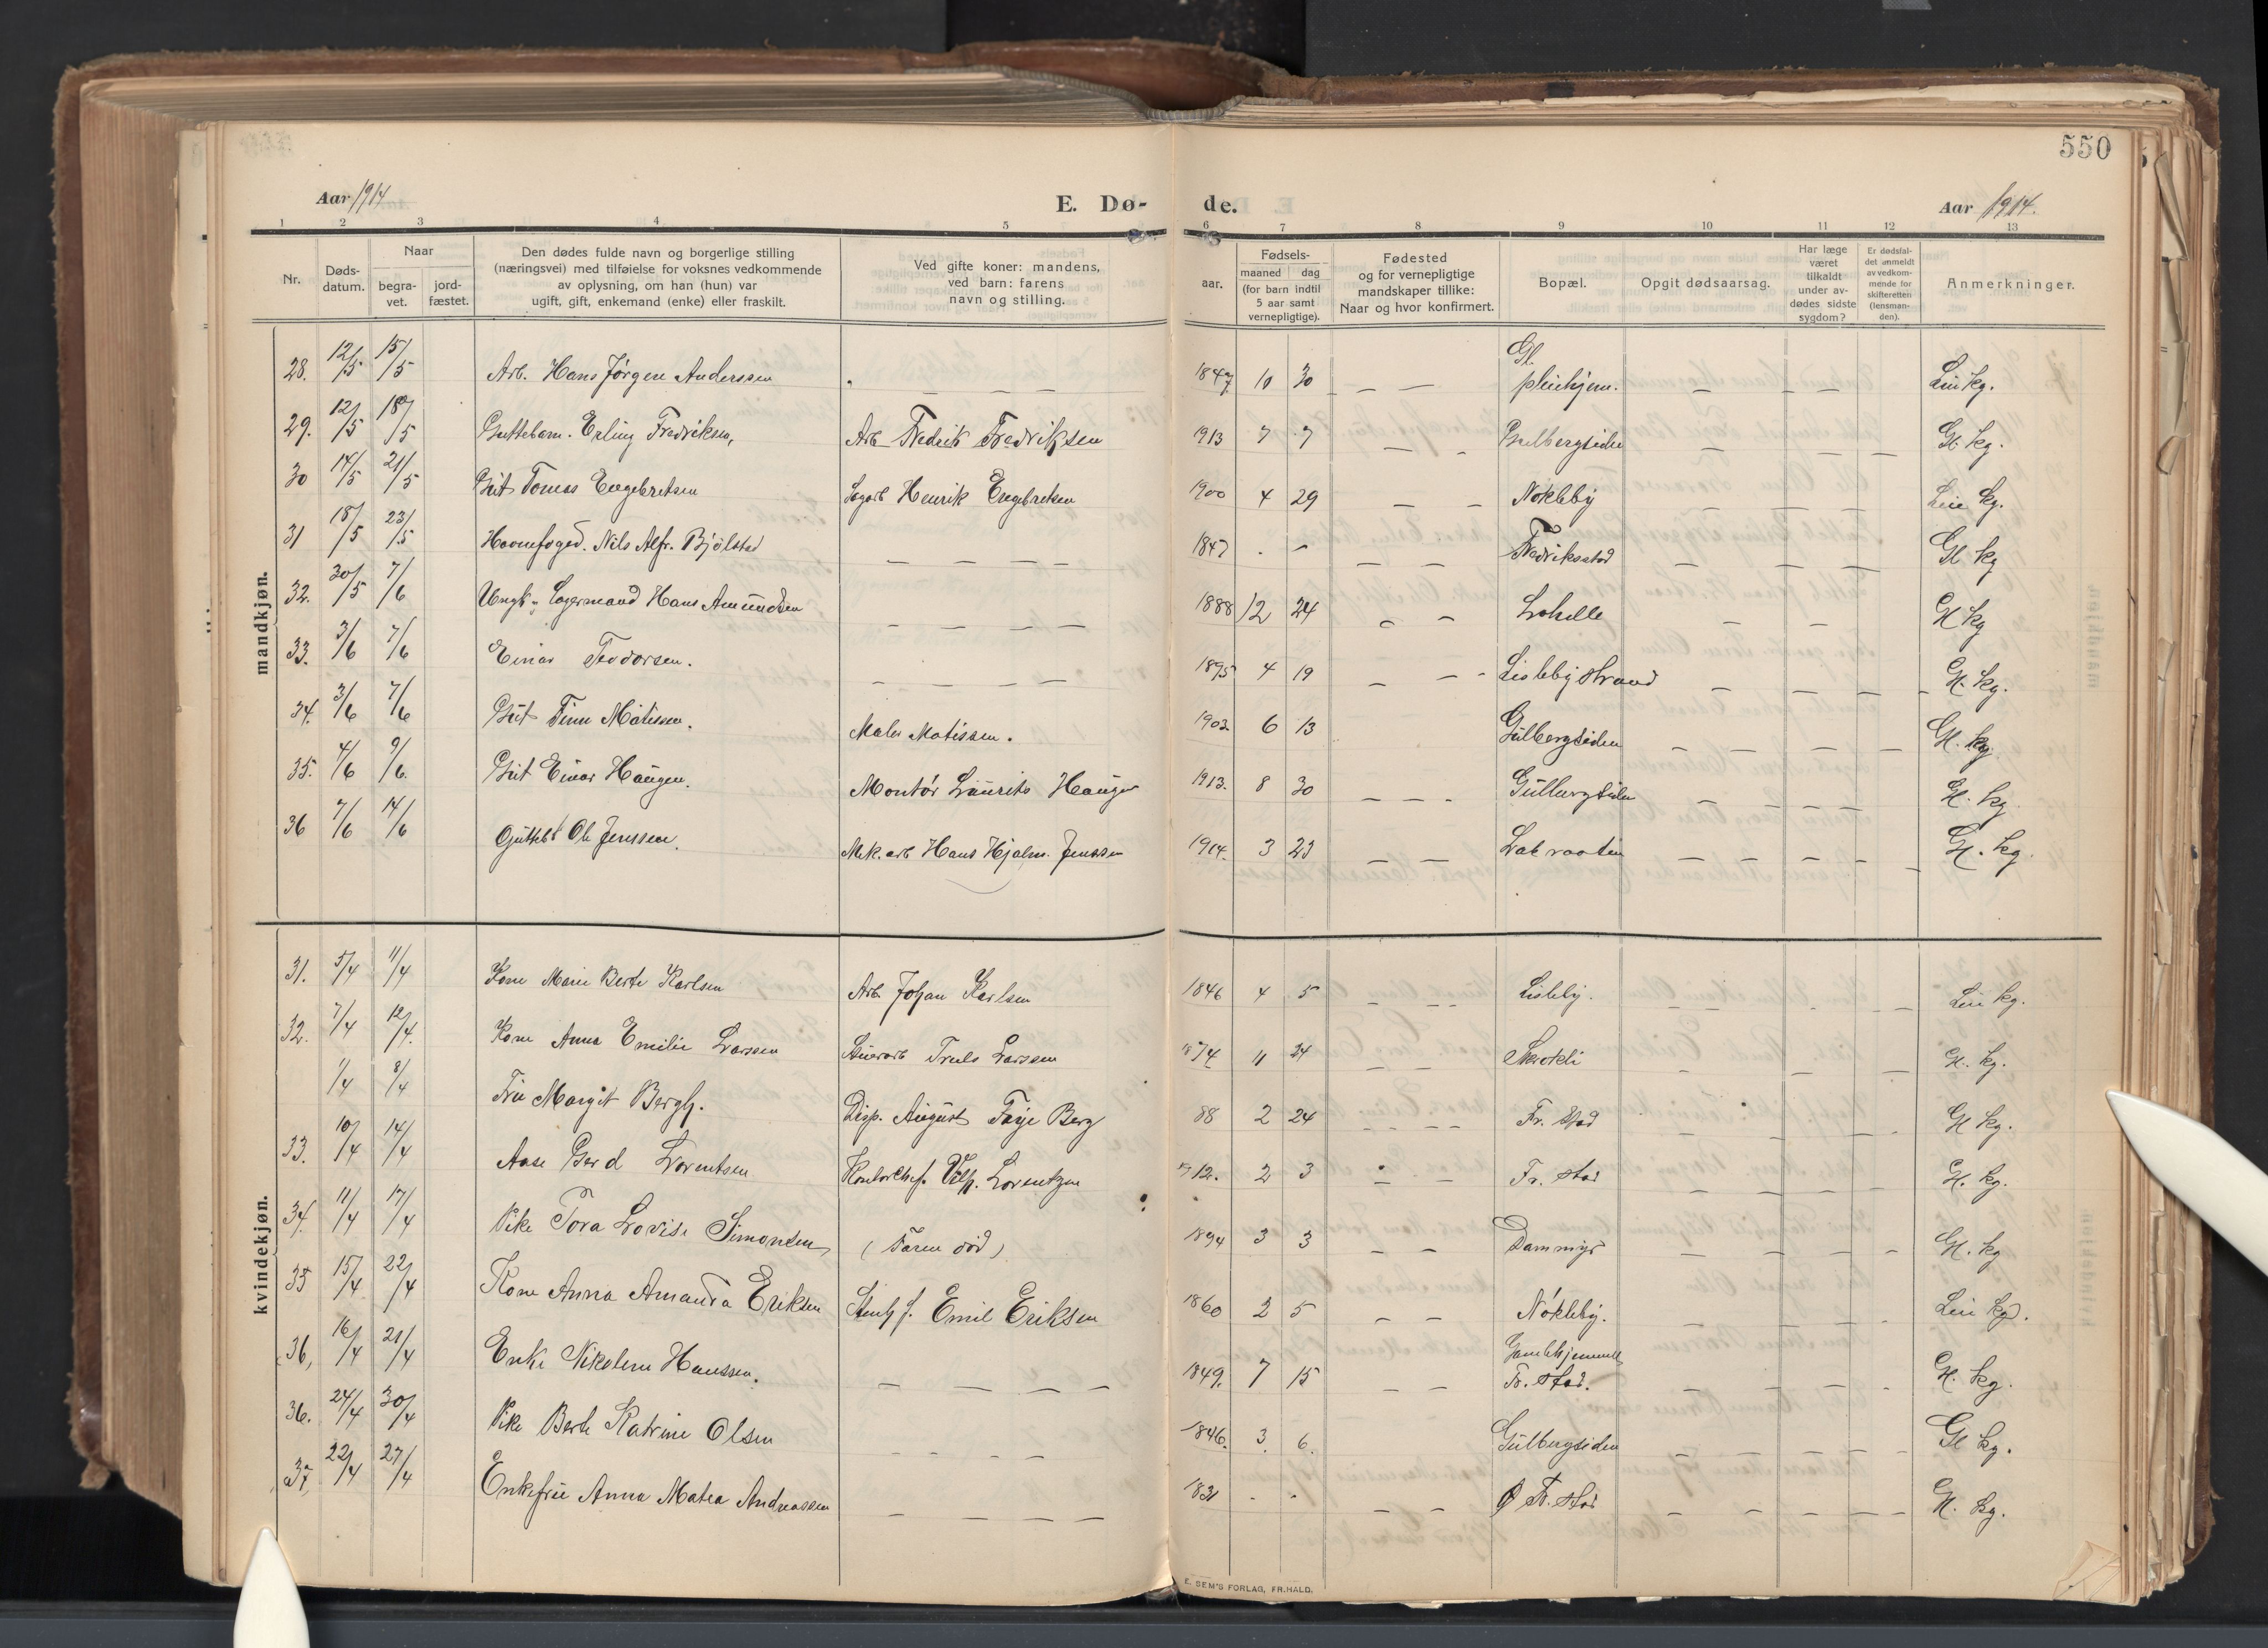 550
Aar 1914
E. Dø- de.
Aar 1914.
1 2 3 4 5 6 7 8 9 10 11 12 13
Nr.
Døds-
datum.
Naar
begra-
vet.
jord-
fæstet.
Den dødes fulde navn og borgerlige stilling
(næringsvei) med tilføielse for voksnes vedkommende
av oplysning, om han (hun) var
ugift, gift, enkemand (enke) eller fraskilt.
Ved gifte koner: mandens,
ved barn: farens
navn og stilling.
Fødsels-
aar.
maaned
dag
(for barn indtil
5 aar samt
vernepligtige).
Fødested
og for vernepligtige
mandskaper tillike:
Naar og hvor konfirmert.
Bopæl.
Opgit dødsaarsag.
Har læge
været
tilkaldt
under av-
dødes sidste
sygdom?
Er dødsfal-
det anmeldt
av vedkom-
mende for
skifteretten
(lensman-
den).
Anmerkninger.
mandkjøn.
28. 12/5 15/5 Arb. Hans Jørgen Anderssen 1847 10 30 Gl. pleiehjem. Leie kg.
29. 12/5 18/5 Guttebarn. Erling Fredriksen, Arb Fredrik Fredriksen 1913 7 7 Gulbergsiden Gl. kg.
30 14/5 21/5 Gut Tomas Engebretsen Sagarb Henrik Engebretsen 1900 4 29 Nøkleby Leie kg.
31 18/5 23/5 Havnefoged. Nils Alfr. Bjølstad 1847 - - Fredriksstad Gl kg
32. 30/5 7/6 Ungk. Lagermand Hans Amundsen 1888 12 24 Lohelle Gl kg
33. 3/6 7/6 Einar Teodorsen. 1895 4 19 Lisleby strand Gl. kg.
34. 3/6 7/6 Gut Finn Matissen. Maler Matissen. 1902 6 13 Gulbergsiden Gl. kg.
35. 4/6 9/6. Gut Einar Haugen. Montør Laurits Haugen 1913. 8 30 Gulbergsiden Gl. kg.
36 7/6 14/6 Guttebt Ole Jenssen. Mek. arb Hans Hjalm. Jenssen 1914. 3 23 Gl. kg.
kvindekjøn.
31. 5/4 11/4 Kone Marie Berte Karlsen Arb Johan Karlsen 1846 4 5 Lisleby. Leie kg.
32. 7/4 12/4. Kone Anna Emilie Larssen Truls Larssen 1874 11 24 Gl. kg.
1/4 8/4 Fru Margit Bergh. Disp. August Faye Berg 88 2 24 Fr. stad Gl kg.
33. 10/4 14/4 Aase Gerd Lorentsen Kontorchef. Vilh. Lorentzen 1912. 2 3 Fr. stad Gl. kg.
34. 11/4 17/4 Pike Tora Lovise Simonsen (Faren død) 1894 3 3 Dammyr Gl. kg
35 15/4 22/4 Kone Anna Amanda Eriksen Stenh f. Emil Eriksen 1860 2 5 Nøkleby. Leie kg.
36, 16/4 21/4 Enke Nikoline Hanssen. 1849. 7 15 Gamlehjemmet Fr. stad. Gl. kg.
36. 24/4 30/4 Pike Berte Katrine Olsen 1846. 3. 6. Gulbergsiden Gl kg.
37, 22/4 27/4 Enkefrue Anna Matea Andreassen 1831 - - Ø Fr. stad Gl. kg.
E. SEM'S FORLAG, FR.HALD.